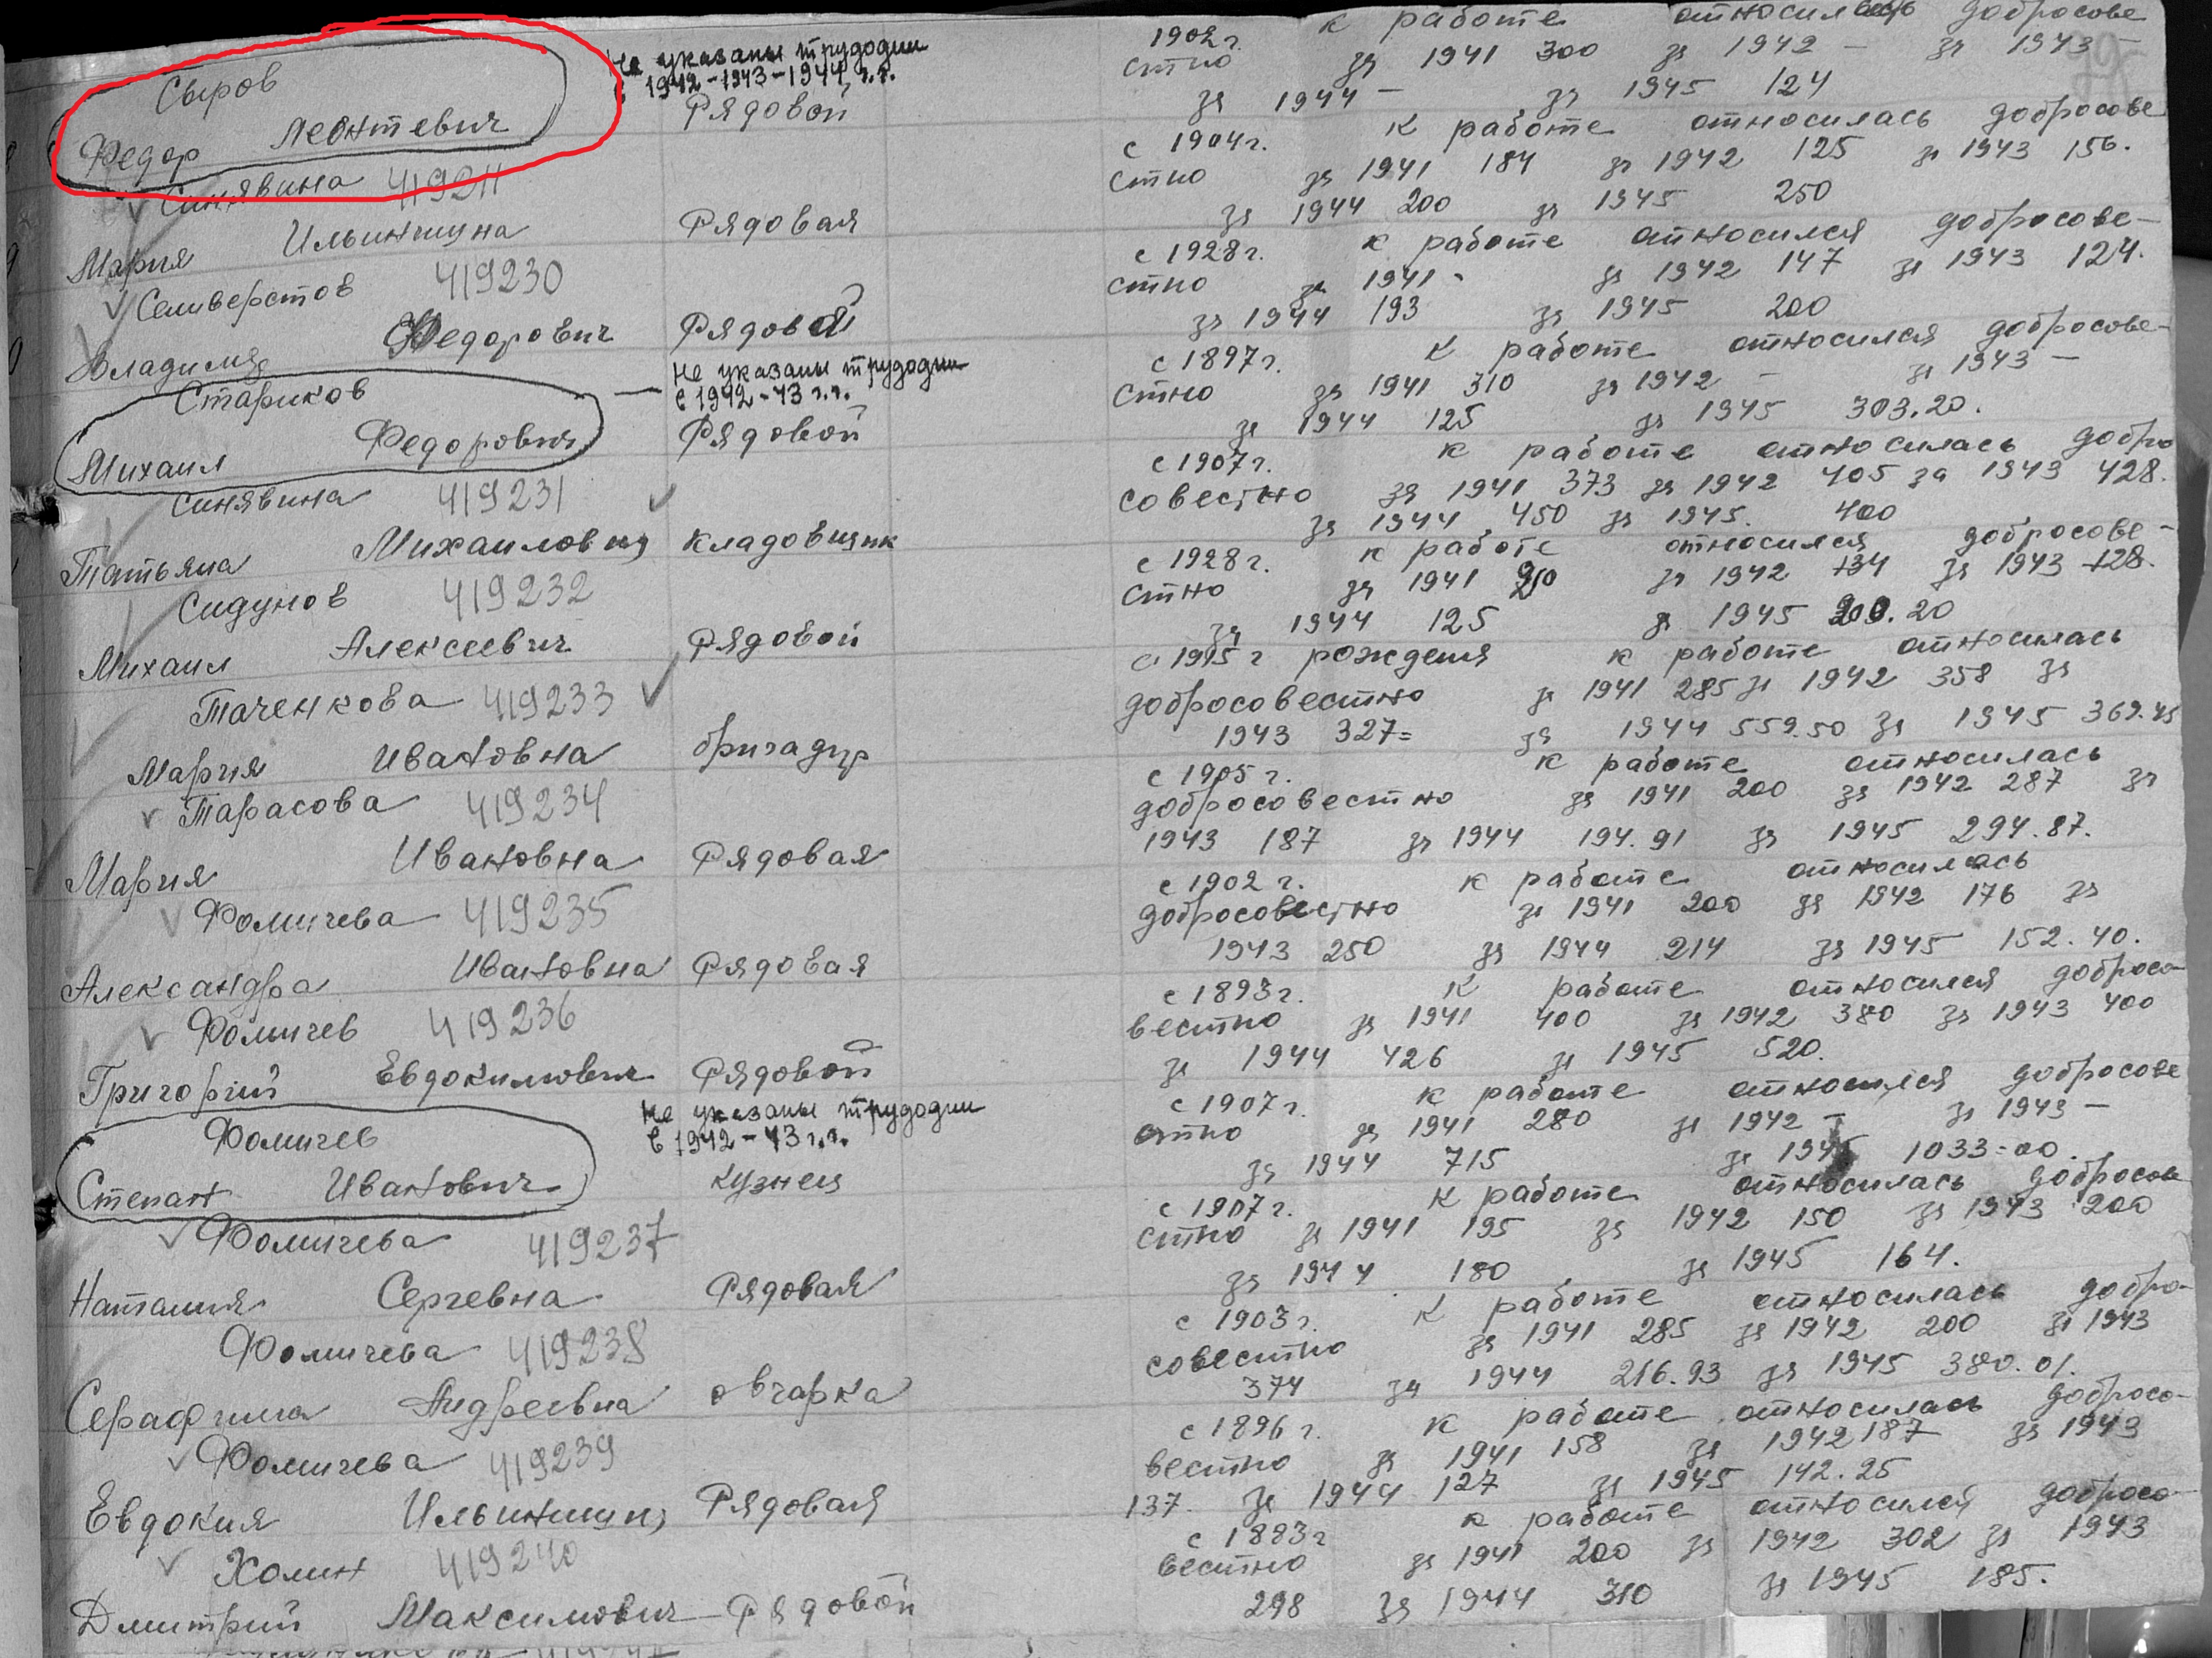 Сыров
Федор Леонтевич
не указаны трудодни
с 1942-1943-1944 г.г.
Рядовой
1902г. к работе относилась добросове
стно за 1941 300 за 1942 - за 1943 -
за 1944 - за 1945 124
Синявина 419211
Мария Ильинична Рядовая
с 1904г. к работе относилась добросове
стно за 1941 184 за 1942 125 за 1943 156.
за 1944 200 за 1945 250
Селиверстов 419230
Владимир Федорович Рядовой
с 1928г. к работе относился добросове-
стно за 1941 - за 1942 147 за 1943 124.
за 1944 193 за 1945 200
Стариков
Михаил Федорович
не указаны трудодни
с 1942-43 г.г.
Рядовой
с 1897г. к работе относился добросове-
стно за 1941 310 за 1942 - за 1943 -
за 1944 125 за 1945 303.20.
Синявина 419231
Татьяна Михаиловна кладовщик
с 1907г. к работе относилась добро
совестно за 1941 373 за 1942 405 за 1943 428.
за 1944 450 за 1945. 400
Сидунов 419232
Михаил Алексеевич Рядовой
с 1928г. к работе относился добросове-
стно за 1941 за 1942 134 за 1943 128.
за 1944 125 за 1945 200.20
Таченкова 419233
Мария Ивановна бригадир
с 1915 г рождения к работе относилась
добросовестно за 1941 285 за 1942 358 за
1943 327= за 1944 559.50 за 1945 369.45
Тарасова 419234
Мария Ивановна Рядовая
с 1905 г. к работе относилась
добросовестно за 1941 200 за 1942 287 за
1943 187 за 1944 194.91 за 1945 294.87.
Фомичева 419235
Александра Ивановна Рядовая
с 1902 г. к работе относилась
добросовестно за 1941 200 за 1942 176 за
1943 250 за 1944 214 за 1945 152.40.
Фомичев 419236
Григорий Евдокимович Рядовой
с 1893г. к работе относился добросо-
вестно за 1941 400 за 1942 380 за 1943 400
за 1944 426 за 1945 520.
Фомичев
Степан Иванович
не указаны трудодни
с 1942-43 г.г.
кузнец
с 1907г. к работе относился добросове
стно за 1941 280 за 1942 - за 1943 -
за 1944 715 за 1945 1033=00.
Фомичева 419237
Наталия Сергевна Рядовая
с 1907г. к работе относилась добросове
стно за 1941 195 за 1942 150 за 1943 200
за 1944 180 за 1945 164.
Фомичева 419238
Серафима Андреевна овчарка
с 1903г. к работе относилась добро-
совестно за 1941 285 за 1942 200 за 1943
374 за 1944 216.93 за 1945 380.01.
Фомичева 419239
Евдокия Ильинична Рядовая
с 1896 г. к работе относилась добросо-
вестно за 1941 158 за 1942 187 за 1943
137. за 1944 127 за 1945 142.25
Холин 419240
Дмитрий Максимович Рядовой
с 1883г к работе относился добросо-
вестно за 1941 200 за 1942 302 за 1943
298 за 1944 310 за 1945 185.